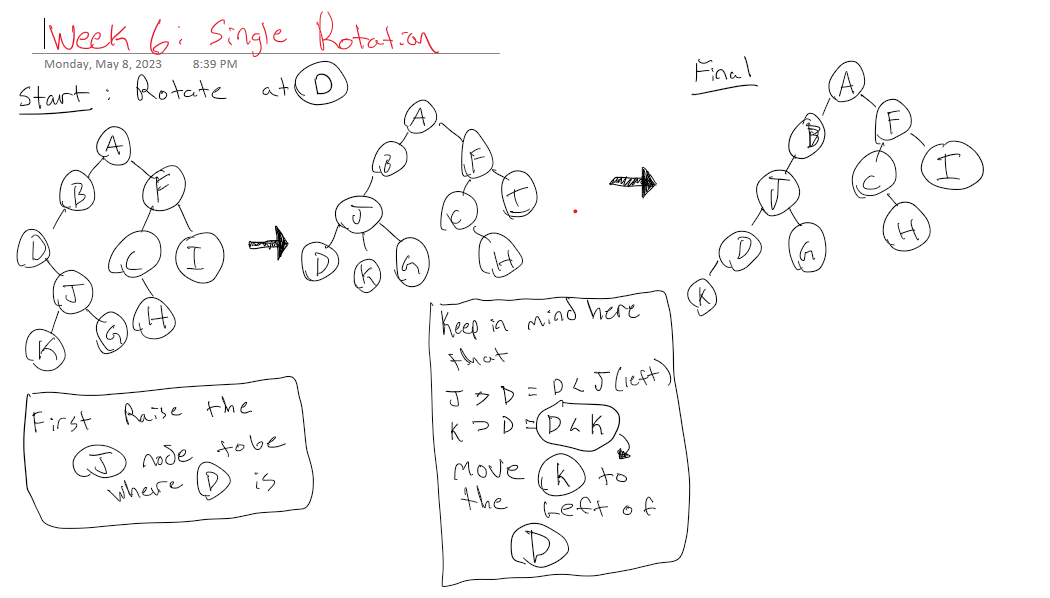 Week 6: Single Rotation
Monday, May 8, 2023 8:39 PM
Start: Rotate at D
A
B F
D C I
J H
K G
A
B F
J C I
D K G H
Final
A
B F
J C I
D G H
K
First Raise the
J node tobe
where D is
Keep in mind here
that
J > D = D < J (left)
K > D = D < K
move K to
the Left of
D